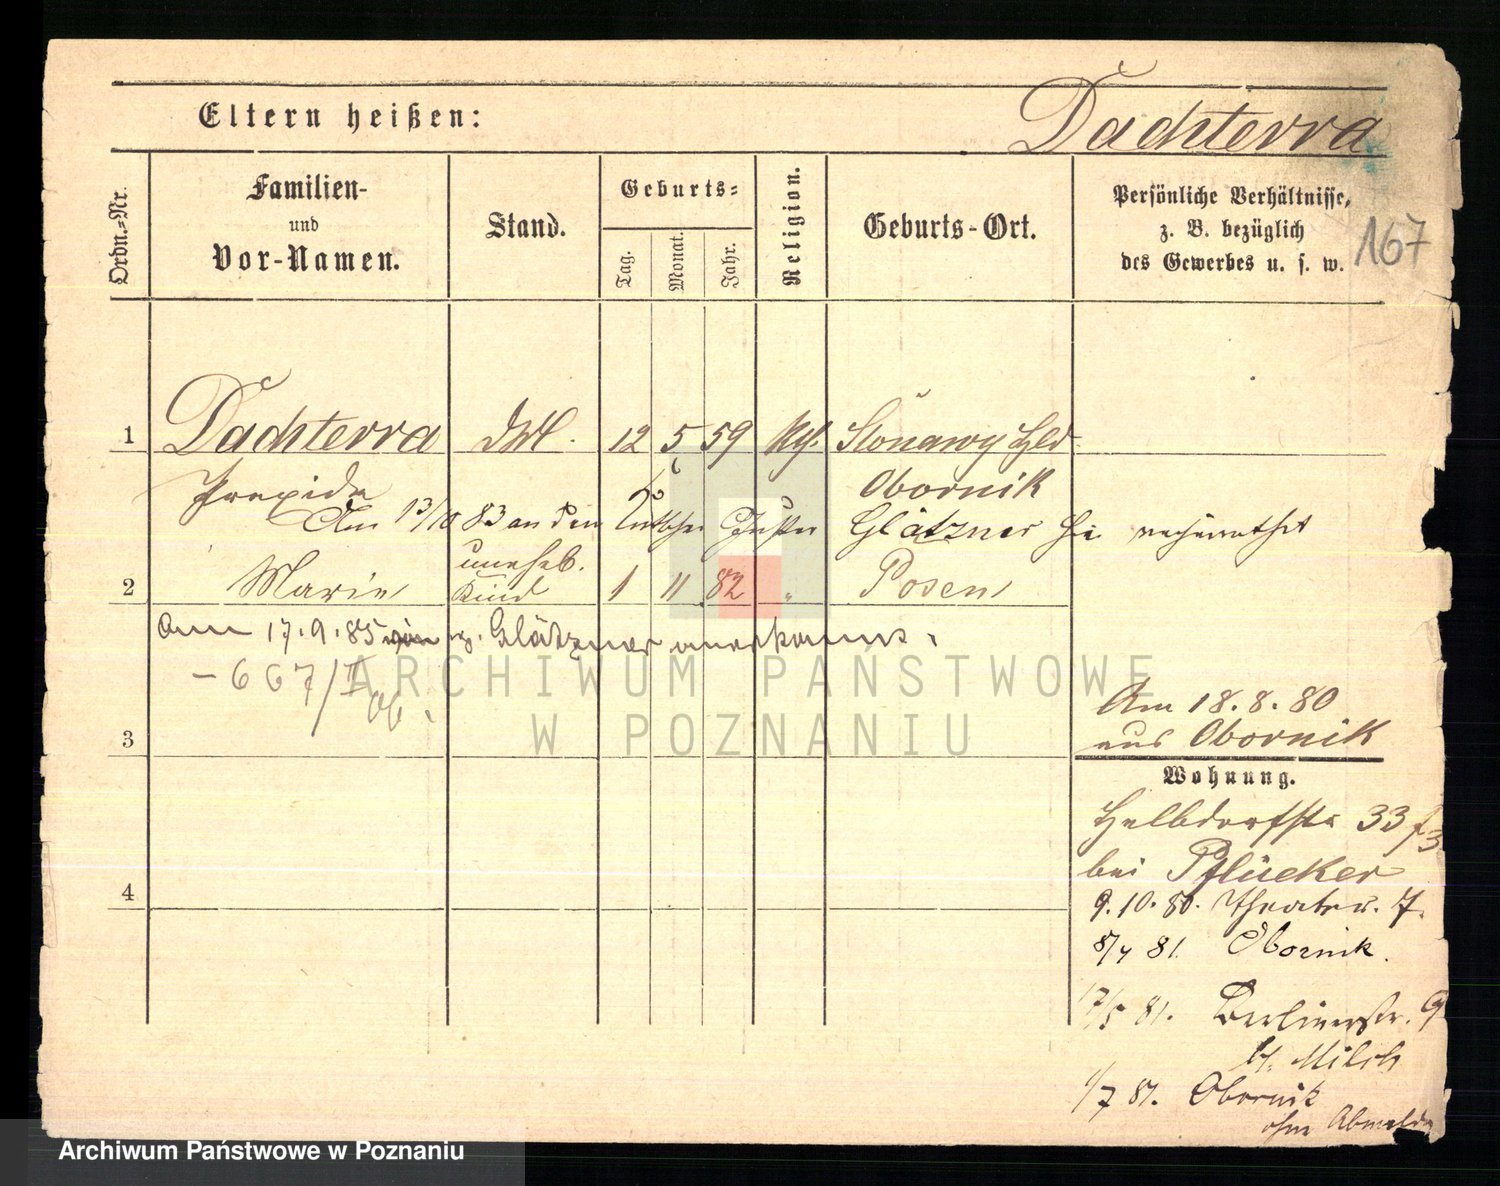 Eltern heißen:
Dachterra
167
Ordn.-Nr.
Familien-
und
Vor-Namen.
Stand.
Geburts-
Tag.
Monat.
Jahr.
Religion.
Geburts-Ort.
Persönliche Verhältnisse,
z. B. bezüglich
des Gewerbes u. s. w.
1 Dachterra 12 5 59 Kth. Slonawy Hld
Praxida Obornik
Am 13/10 83 an den Glätzner hie verheirathet
uneheb.
2 Marie Kind 1 11 82 " Posen
Am 17.9.85 Glätzner anerkannt.
- 667/II 86.
ARCHIWUM PAŃSTWOWE
W POZNANIU
Am 18.8.80
aus Obornik
3
Wohnung.
Halbdorfstr 33
bei Pflücker
4
9.10.80. Theaterstr. 7.
8/4 81. Obornik.
17/5 81. Berlinerstr. 9
b. Milch
1/7 81. Obornik
ohne Abmeldg
Archiwum Państwowe w Poznaniu